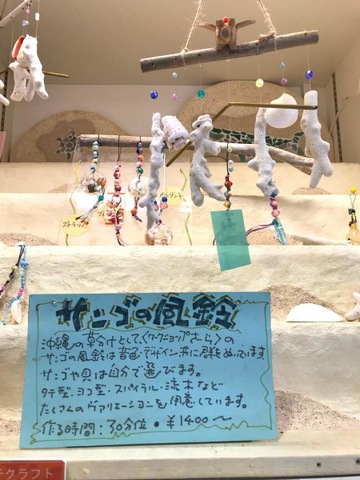 ストラップ
サンゴの風鈴
沖縄の草分けとして、〈ワークショップさら〉の
サンゴの風鈴は音色・デザイン共に群をぬいています
サンゴや貝は自分で選びます。
タテ型・ヨコ型・スパイラル・流木など
たくさんのヴァリエーションを用意しています。
作る時間：30分位・¥1400〜
クラフト